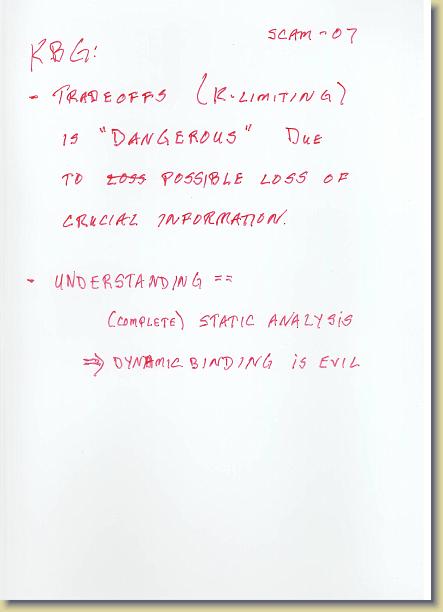 SCAM-07
KBG:
- TRADEOFFS (K-LIMITING)
IS "DANGEROUS" DUE
TO LOSS POSSIBLE LOSS OF
CRUCIAL INFORMATION.
- UNDERSTANDING ==
(COMPLETE) STATIC ANALYSIS
⇒ DYNAMIC BINDING IS EVIL